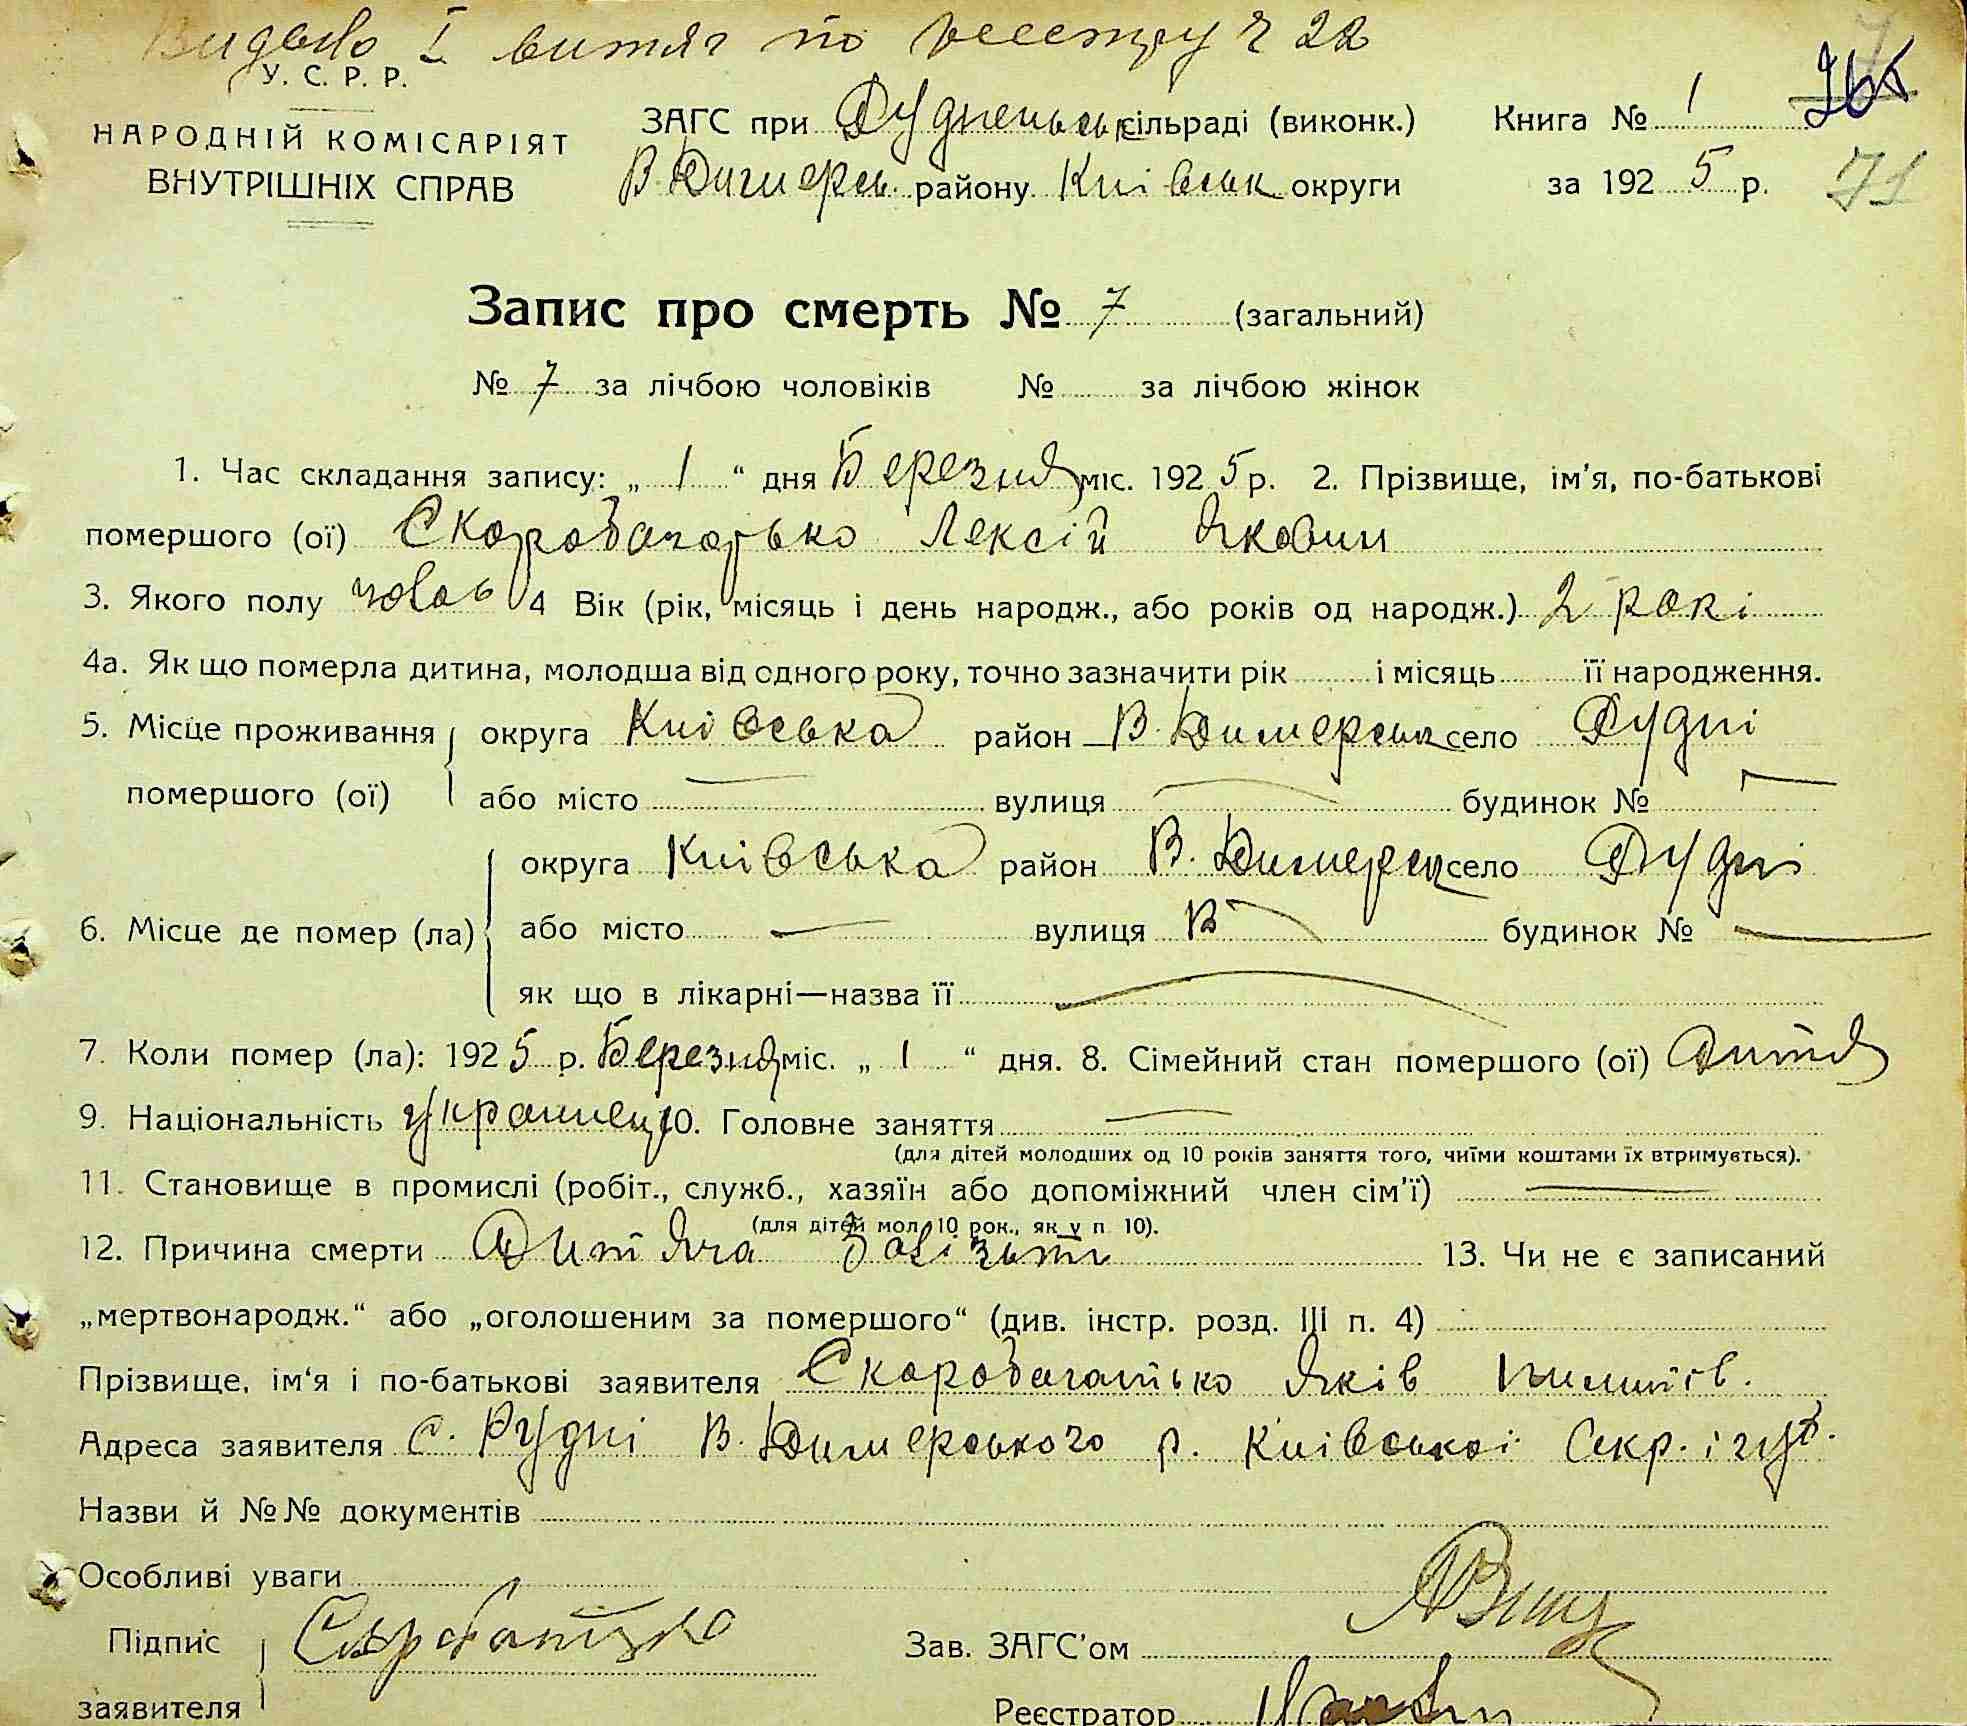 Видано I витяг по реестру Ч 22
У. С. Р. Р.
НАРОДНІЙ КОМІСАРІЯТ
ВНУТРІШНІХ СПРАВ
ЗАГС при Рудненськ сільраді (виконк.) Книга № 1
В Димерсь. району Київськ округи за 192 5 р. 71
Запис про смерть № 7 (загальний)
№ 7 за лічбою чоловіків № за лічбою жінок
1. Час складання запису: „ 1 “ дня Березня міс. 192 5 р. 2. Прізвище, ім'я, по-батькові
помершого (ої) Скоробагатько Лексій Якович
3. Якого полу 4 Вік (рік, місяць і день народж., або років од народж.) 2 рокі
4а. Як що померла дитина, молодша від одного року, точно зазначити рік і місяць її народження.
5. Місце проживання округа Київська район В. Димерськ село Рудні
помершого (ої) або місто — вулиця — будинок № —
округа Київська район В. Димерськ село Рудні
6. Місце де помер (ла) або місто — вулиця В — будинок № —
як що в лікарні—назва її —
7. Коли помер (ла): 192 5 р. Березня міс. „ 1 “ дня. 8. Сімейний стан помершого (ої) Дитя
9. Національність Украинец 10. Головне заняття —
(для дітей молодших од 10 років заняття того, чиїми коштами їх втримується).
11. Становище в промислі (робіт., служб., хазяїн або допоміжний член сім'ї) —
(для дітей мол. 10 рок., як у п. 10).
12. Причина смерти Дитяча 13. Чи не є записаний
„мертвонародж.“ або „оголошеним за помершого“ (див. інстр. розд. III п. 4)
Прізвище, ім‘я і по-батькові заявителя Скоробагатько Яків
Адреса заявителя с. Рудні В. Димерського р. Київської Окр. і губ.
Назви й №№ документів
Особливі уваги
Підпис
заявителя
Зав. ЗАГС'ом
Реєстратор